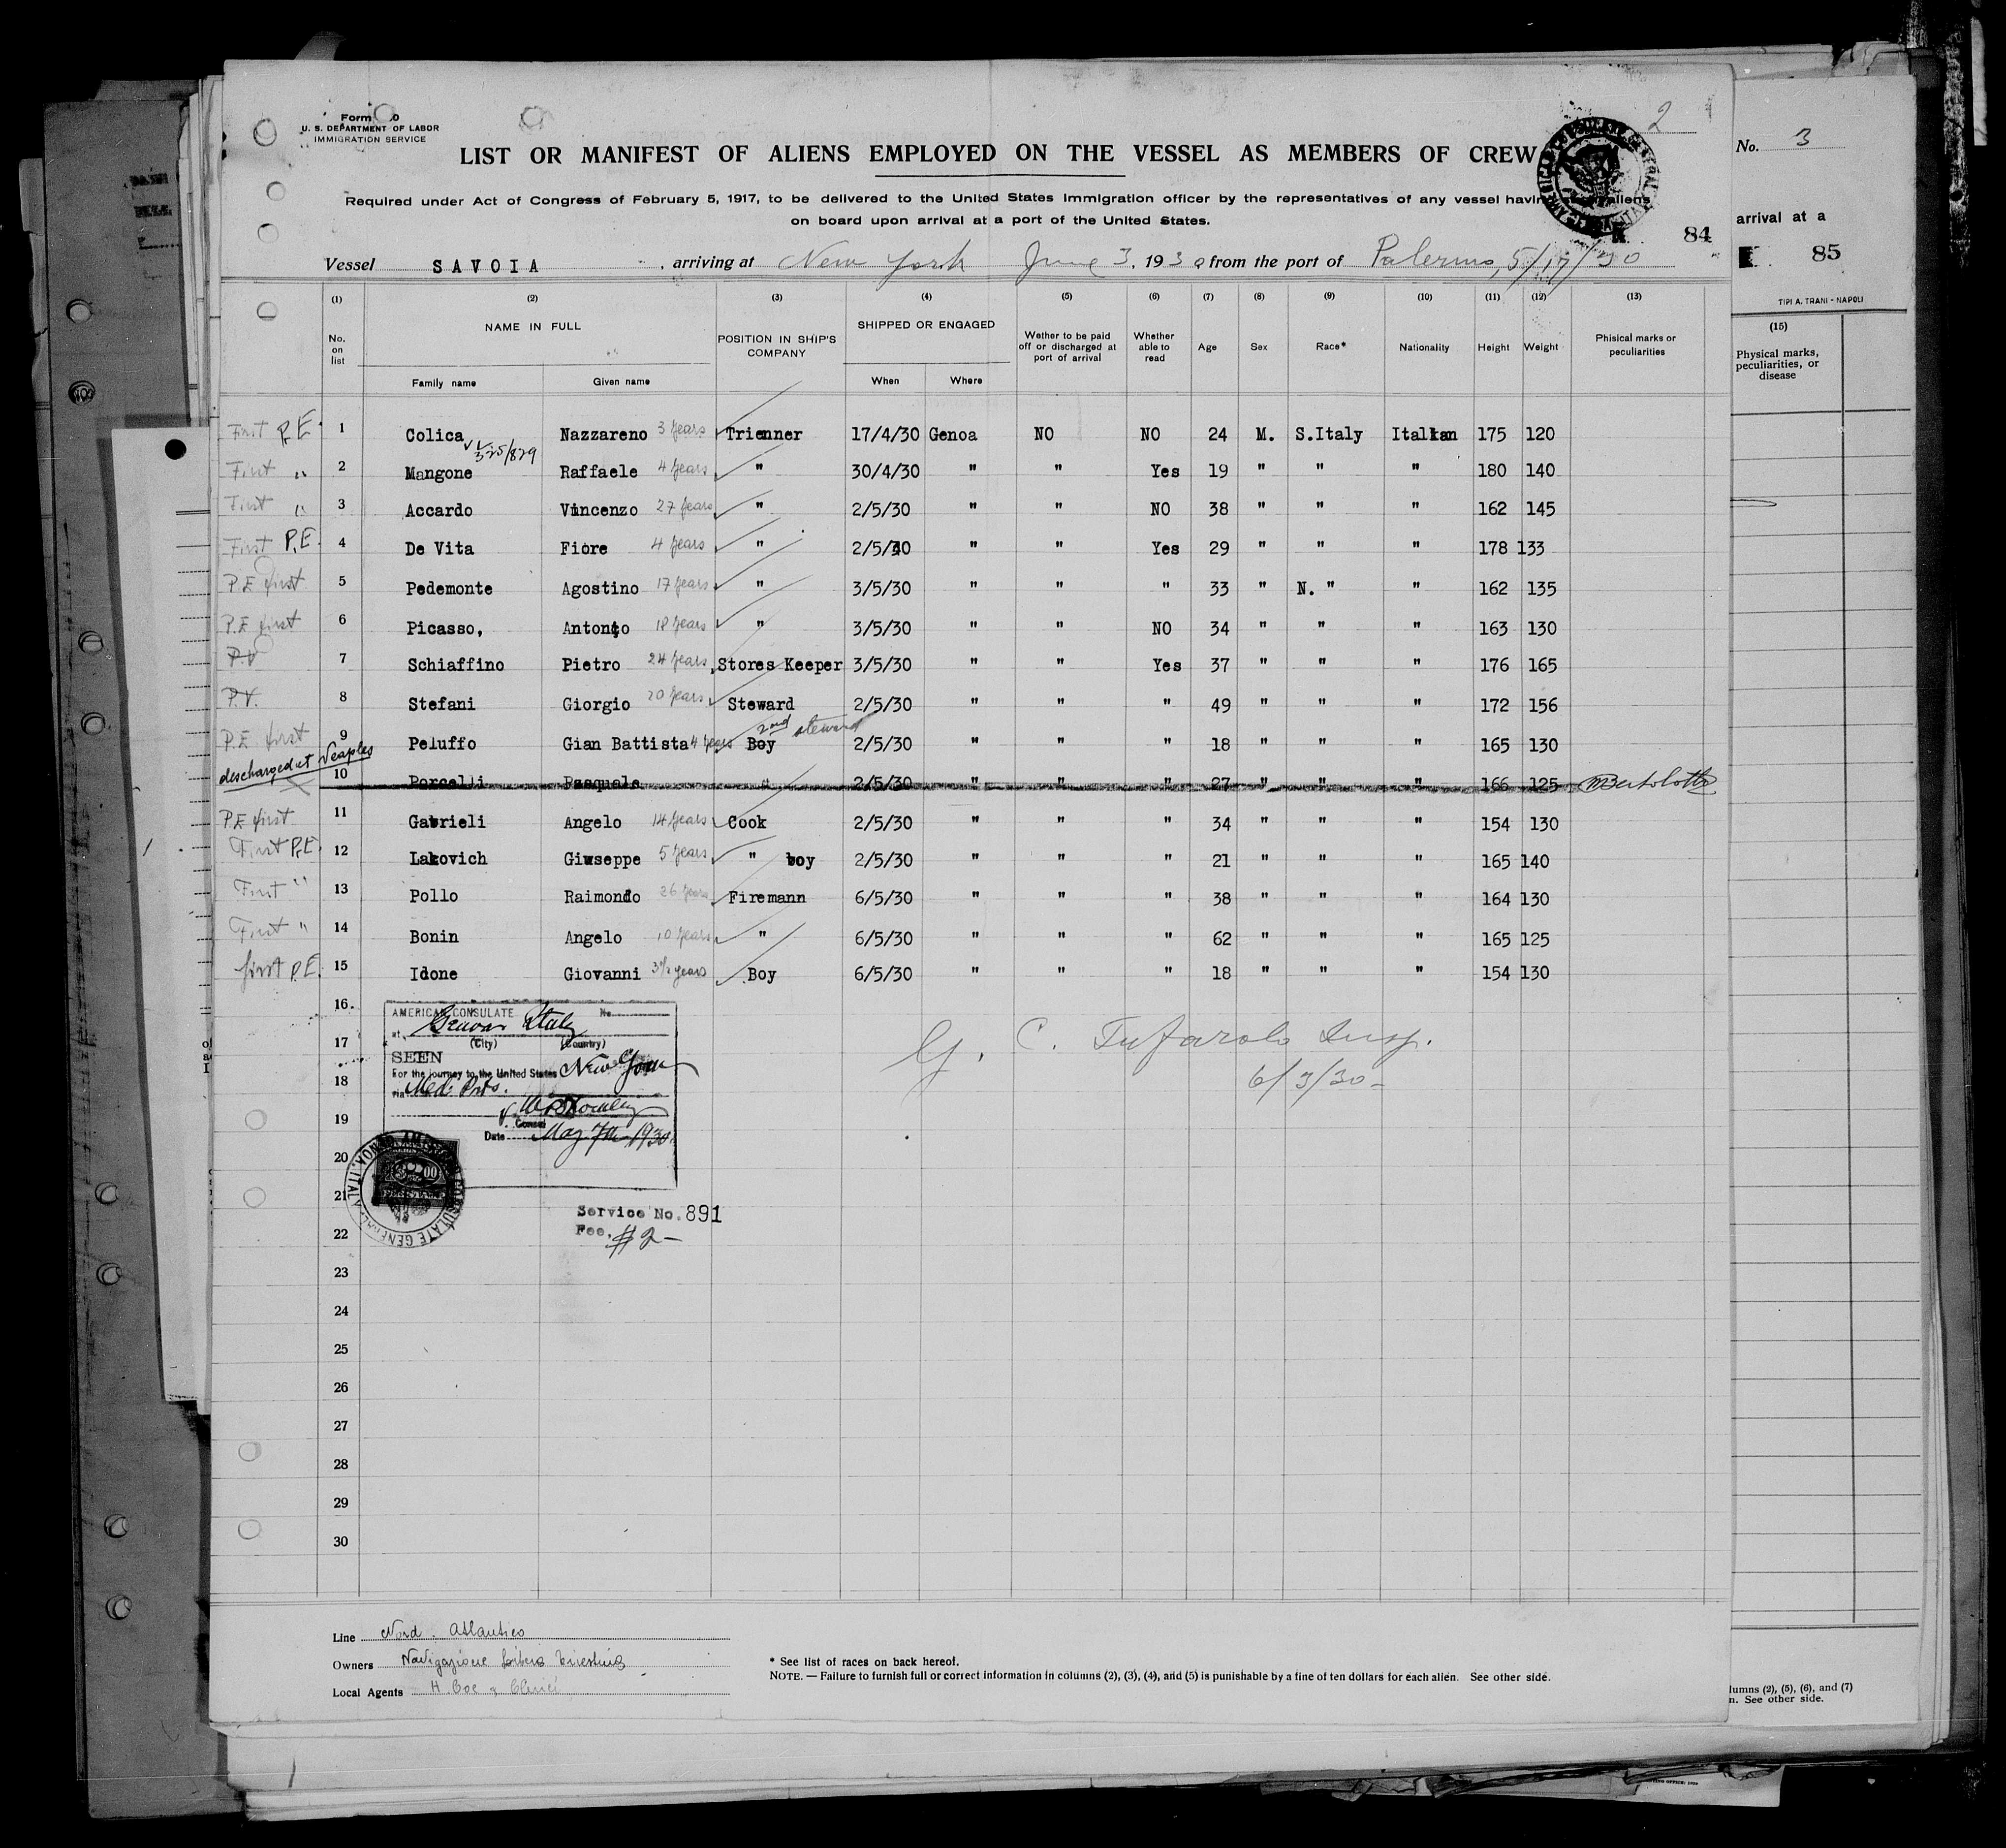 Form 0
U. S. DEPARTMENT OF LABOR
IMMIGRATION SERVICE
2
LIST OR MANIFEST OF ALIENS EMPLOYED ON THE VESSEL AS MEMBERS OF CREW
Required under Act of Congress of February 5, 1917, to be delivered to the United States Immigration officer by the representatives of any vessel having aliens
on board upon arrival at a port of the United States.
84
Vessel SAVOIA , arriving at New York June 3, 1930 from the port of Palermo, 5/17/30
No. 3
arrival at a
85
TIPI A. TRANI - NAPOLI
(15)
Physical marks,
peculiarities, or
disease
(1) (2) (3) (4) (5) (6) (7) (8) (9) (10) (11) (12) (13)
No. on list NAME IN FULL POSITION IN SHIP'S COMPANY SHIPPED OR ENGAGED Wether to be paid off or discharged at port of arrival Whether able to read Age Sex Race* Nationality Height Weight Phisical marks or peculiarities
Family name Given name When Where
First P.E. 1 Colica Nazzareno 3 years Trienner 17/4/30 Genoa NO NO 24 M. S.Italy Italian 175 120
325/829
First " 2 Mangone Raffaele 4 years " 30/4/30 " " Yes 19 " " " 180 140
First " 3 Accardo Vincenzo 27 years " 2/5/30 " " NO 38 " " " 162 145
First P.E. 4 De Vita Fiore 4 years " 2/5/30 " " Yes 29 " " " 178 133
P.E first 5 Pedemonte Agostino 17 years " 3/5/30 " " " 33 " N. " " 162 135
P.E first 6 Picasso, Antonio 18 years " 3/5/30 " " NO 34 " " " 163 130
P.V 7 Schiaffino Pietro 24 years Stores Keeper 3/5/30 " " Yes 37 " " " 176 165
P.V. 8 Stefani Giorgio 20 years Steward 2/5/30 " " " 49 " " " 172 156
2nd steward
P.E first 9 Peluffo Gian Battista 4 years Boy 2/5/30 " " " 18 " " " 165 130
descharged at Neaples 10 Porcelli Pasquale " 2/5/30 " " " 27 " " " 166 125 MBertolotto
P.E first 11 Gabrieli Angelo 14 years Cook 2/5/30 " " " 34 " " " 154 130
First P.E. 12 Lakovich Giuseppe 5 years " boy 2/5/30 " " " 21 " " " 165 140
First " 13 Pollo Raimondo 26 years Firemann 6/5/30 " " " 38 " " " 164 130
First " 14 Bonin Angelo 10 years " 6/5/30 " " " 62 " " " 165 125
first P.E. 15 Idone Giovanni 3½ years Boy 6/5/30 " " " 18 " " " 154 130
16.
17
18
19
20
21
22
23
24
25
26
27
28
29
30
AMERICAN CONSULATE No.
at Genoa Italy
(City) (Country)
SEEN
For the journey to the United States New York
via Med. Prts.
Consul
Date May 7th 1930
Service No. 891
Fee, $2-
G. C. Tufarolo Insp.
6/3/30-
Line Nord. Atlantico
Owners Navigazione Libera Triestina
Local Agents H. Coe & Clerici
* See list of races on back hereof.
NOTE. — Failure to furnish full or correct information in columns (2), (3), (4), and (5) is punishable by a fine of ten dollars for each alien. See other side.
lumns (2), (5), (6), and (7)
n. See other side.